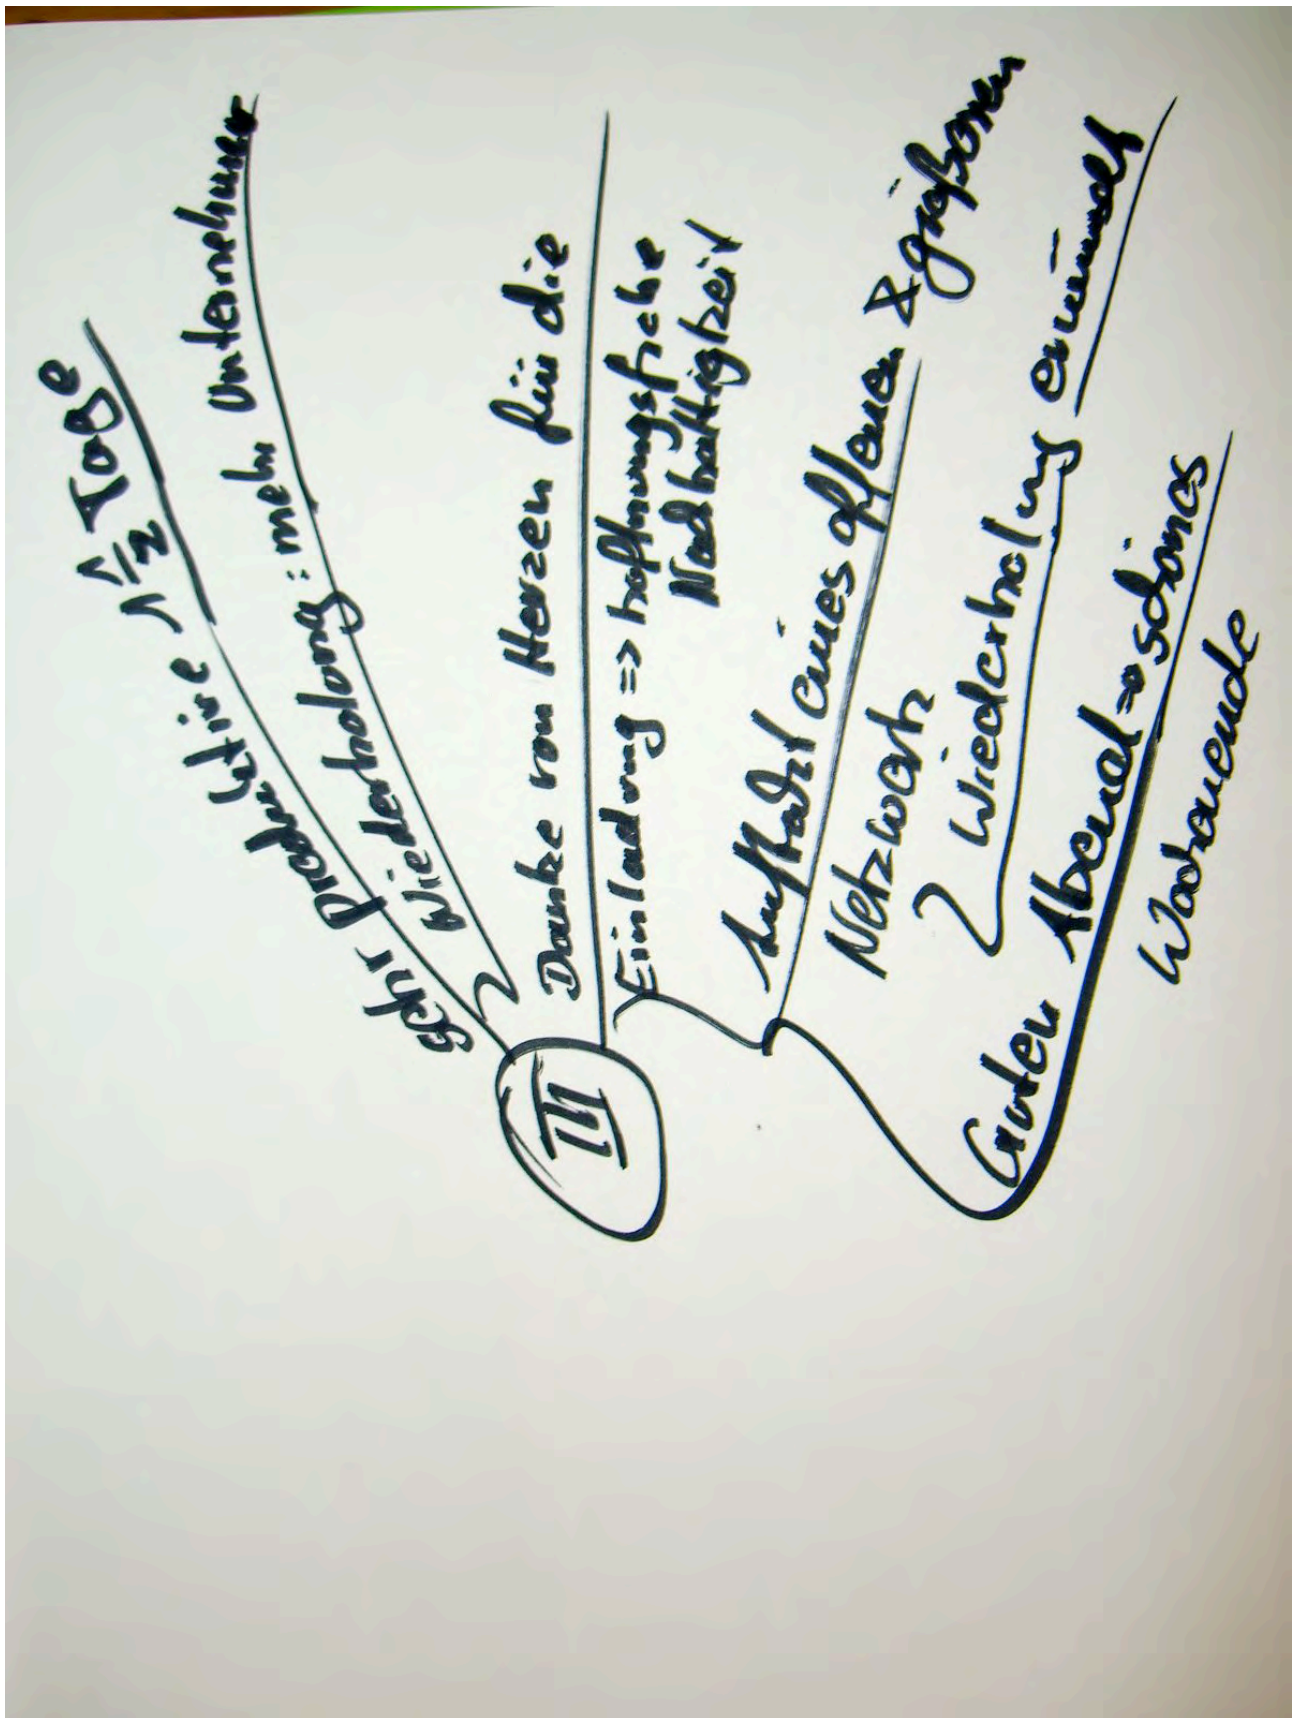 III
sehr produktive 1 1/2 Tage
Wiederholung: mehr Unternehmer
Danke von Herzen für die
Einladung => hoffnungsfrohe
Nachhaltigkeit
Auftakt eines offenen & größeren
Netzwerk
Wiederholung erwünscht
Guten Abend => schönes
Wochenende